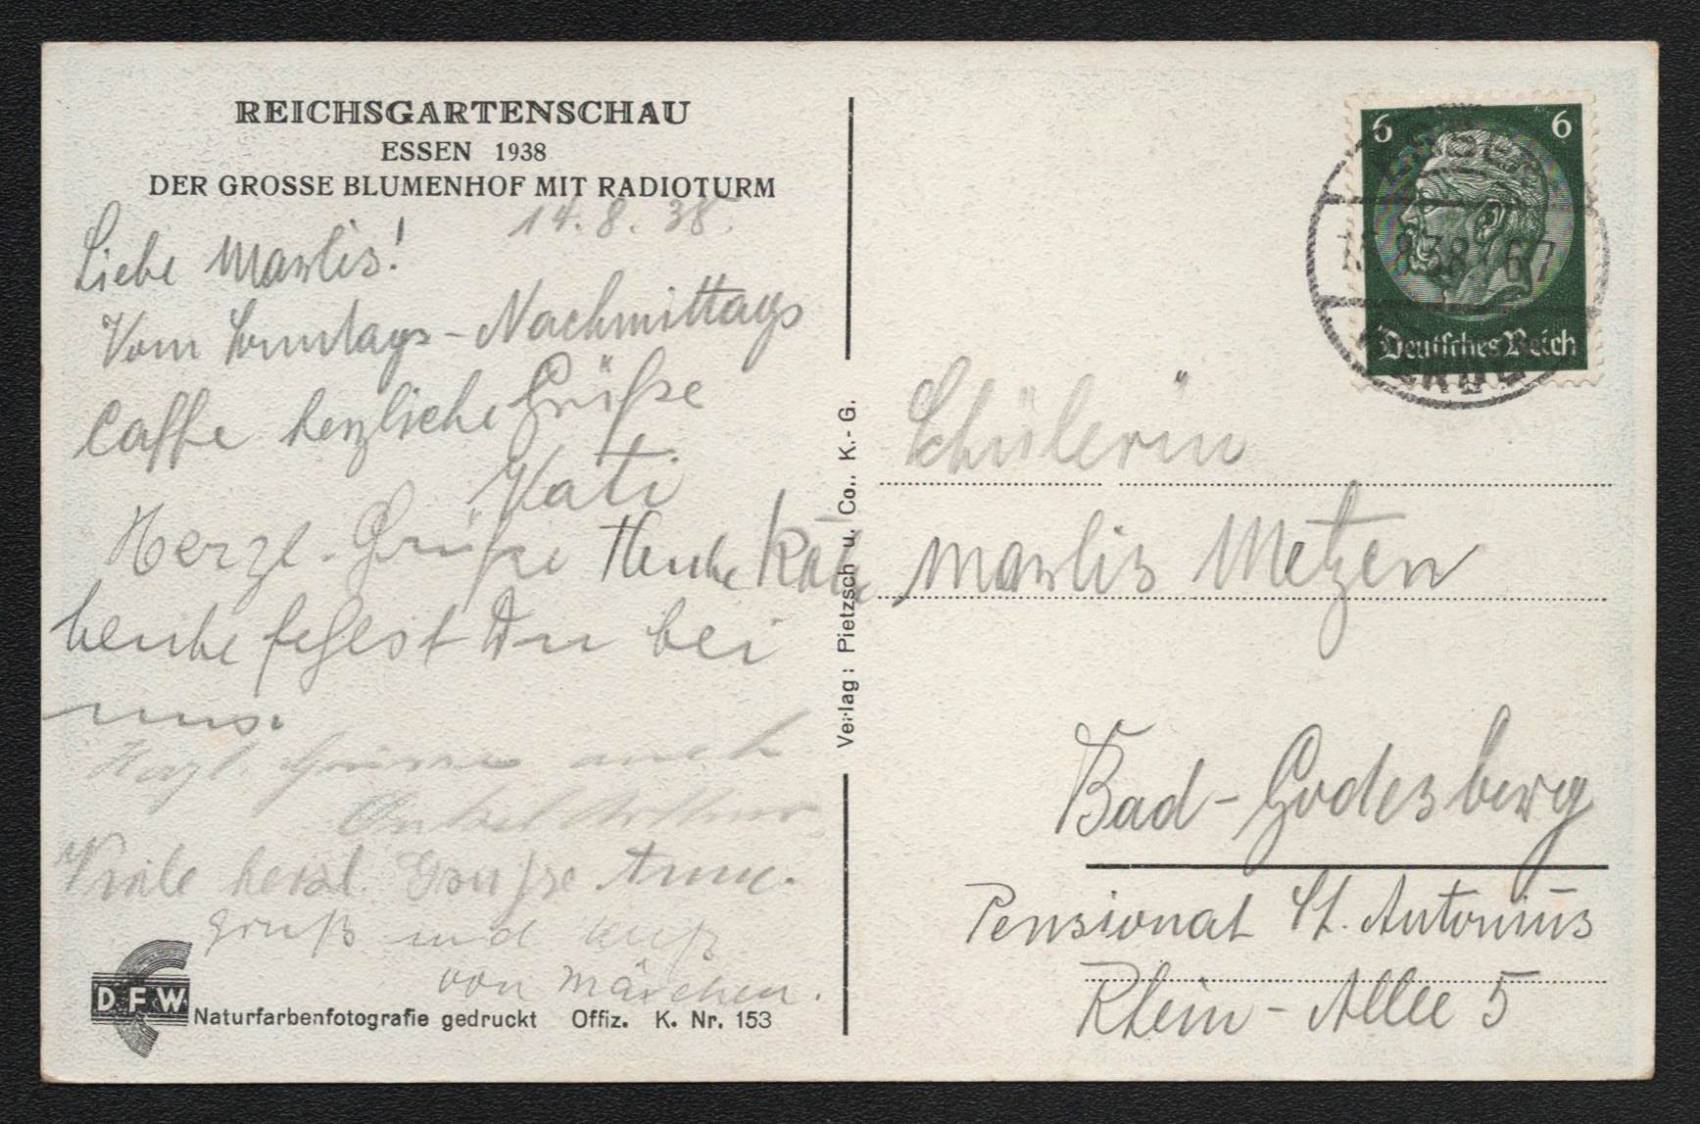 REICHSGARTENSCHAU
ESSEN 1938
DER GROSSE BLUMENHOF MIT RADIOTURM
14. 8. 38.
Liebe Marlis!
Vom Sonntags-Nachmittags
Caffe herzliche Grüße
Kati
Herzl. Grüße Käte
heute fehlest Du bei
uns.
Herzl. Grüsse auch
Onkel Arthur
Viele herzl. Grüße Anne.
Gruß und Kuß
von Märchen.
DFW
Naturfarbenfotografie gedruckt Offiz. K. Nr. 153
Verlag: Pietzsch u. Co., K.-G.
6 6
Deutsches Reich
8.38
Schülerin
Marlis Metzen
Bad-Godesberg
Pensionat St. Antonius
Rhein-Allee 5